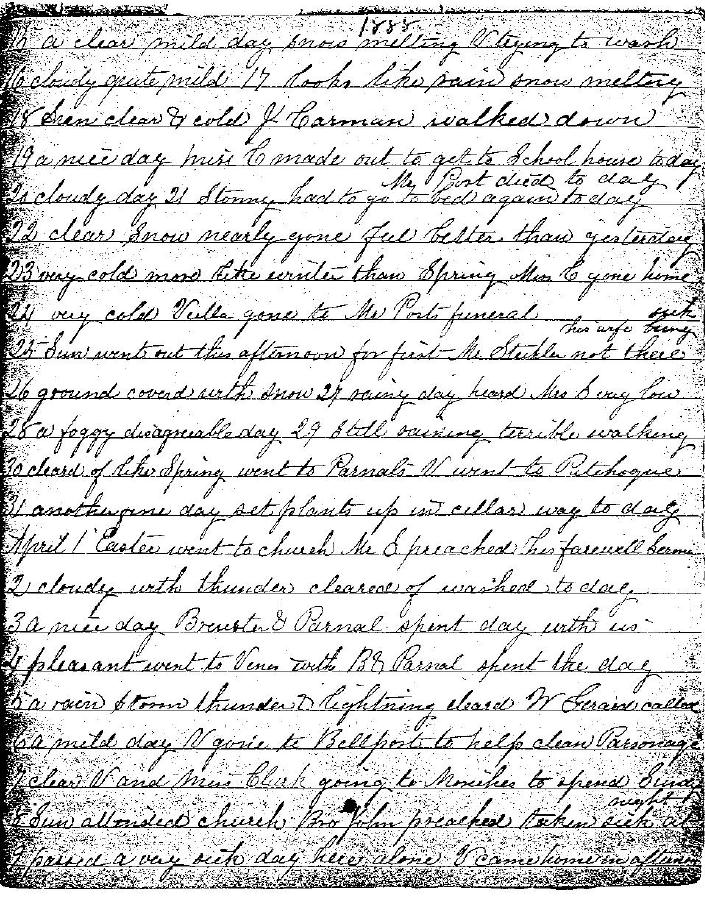 1888
15 a clear mild day snow melting V trying to wash
16 cloudy quite mild 17 looks like rain snow melting
18 Sun clear & cold J. Carman walked down
19 a nice day Miss C made out to get to School house today
Mr Post died to day
20 cloudy day 21 Stormy had to go to bed again to day
22 clear Snow nearly gone feel better than yesterday
23 very cold more like winter than Spring Miss C gone home
24 very cold gone to Mr Posts funeral
his wife being sick
25 Sun went out this afternoon for first Mr not there
26 ground coverd with snow 27 rainy day heard Mrs S very low
28 a foggy disagreeable day 29 Still raining terrible walking
30 cleard of like Spring went to Parnals V went to Patchogue
31 another fine day set plants up in cellar way to day
April 1 Easter went to church Mr E preached his farewell Sermon
2 cloudy with thunder cleared of washed to day
3 a nice day Brewster & Parnal spent day with us
4 pleasant went to Venes with B & Parnal spent the day
5 a rain storm thunder & lightning cleard W Gerard called
6 a mild day V gone to Bellport to help clean Parsonage
7 clear V and Miss Clark going to Moriches to spend Sunday
night
8 Sun attended church Bro John preached taken sick at
9 passed a very sick day here alone V came home in afternoon